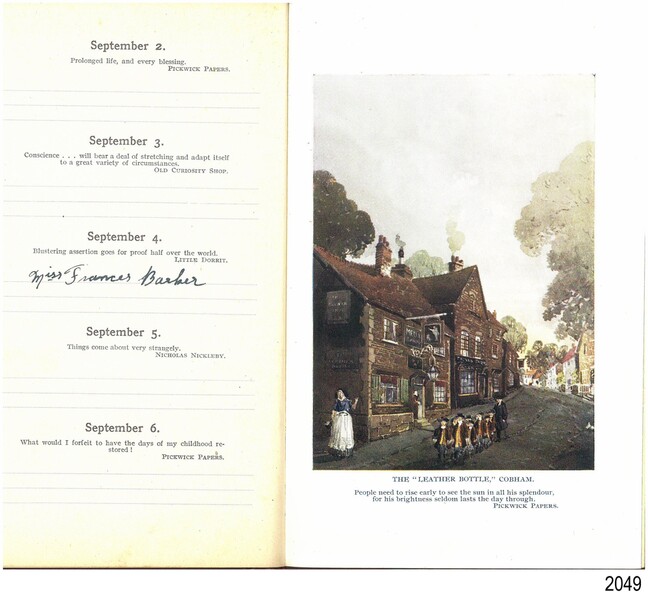 September 2.
Prolonged life, and every blessing.
PICKWICK PAPERS.
September 3.
Conscience . . . will bear a deal of stretching and adapt itself
to a great variety of circumstances.
OLD CURIOSITY SHOP.
September 4.
Blustering assertion goes for proof half over the world.
LITTLE DORRIT.
Miss Frances Barber
September 5.
Things come about very strangely.
NICHOLAS NICKLEBY.
September 6.
What would I forfeit to have the days of my childhood re-
stored!
PICKWICK PAPERS.
THE "LEATHER BOTTLE," COBHAM.
People need to rise early to see the sun in all his splendour,
for his brightness seldom lasts the day through.
PICKWICK PAPERS.
2049